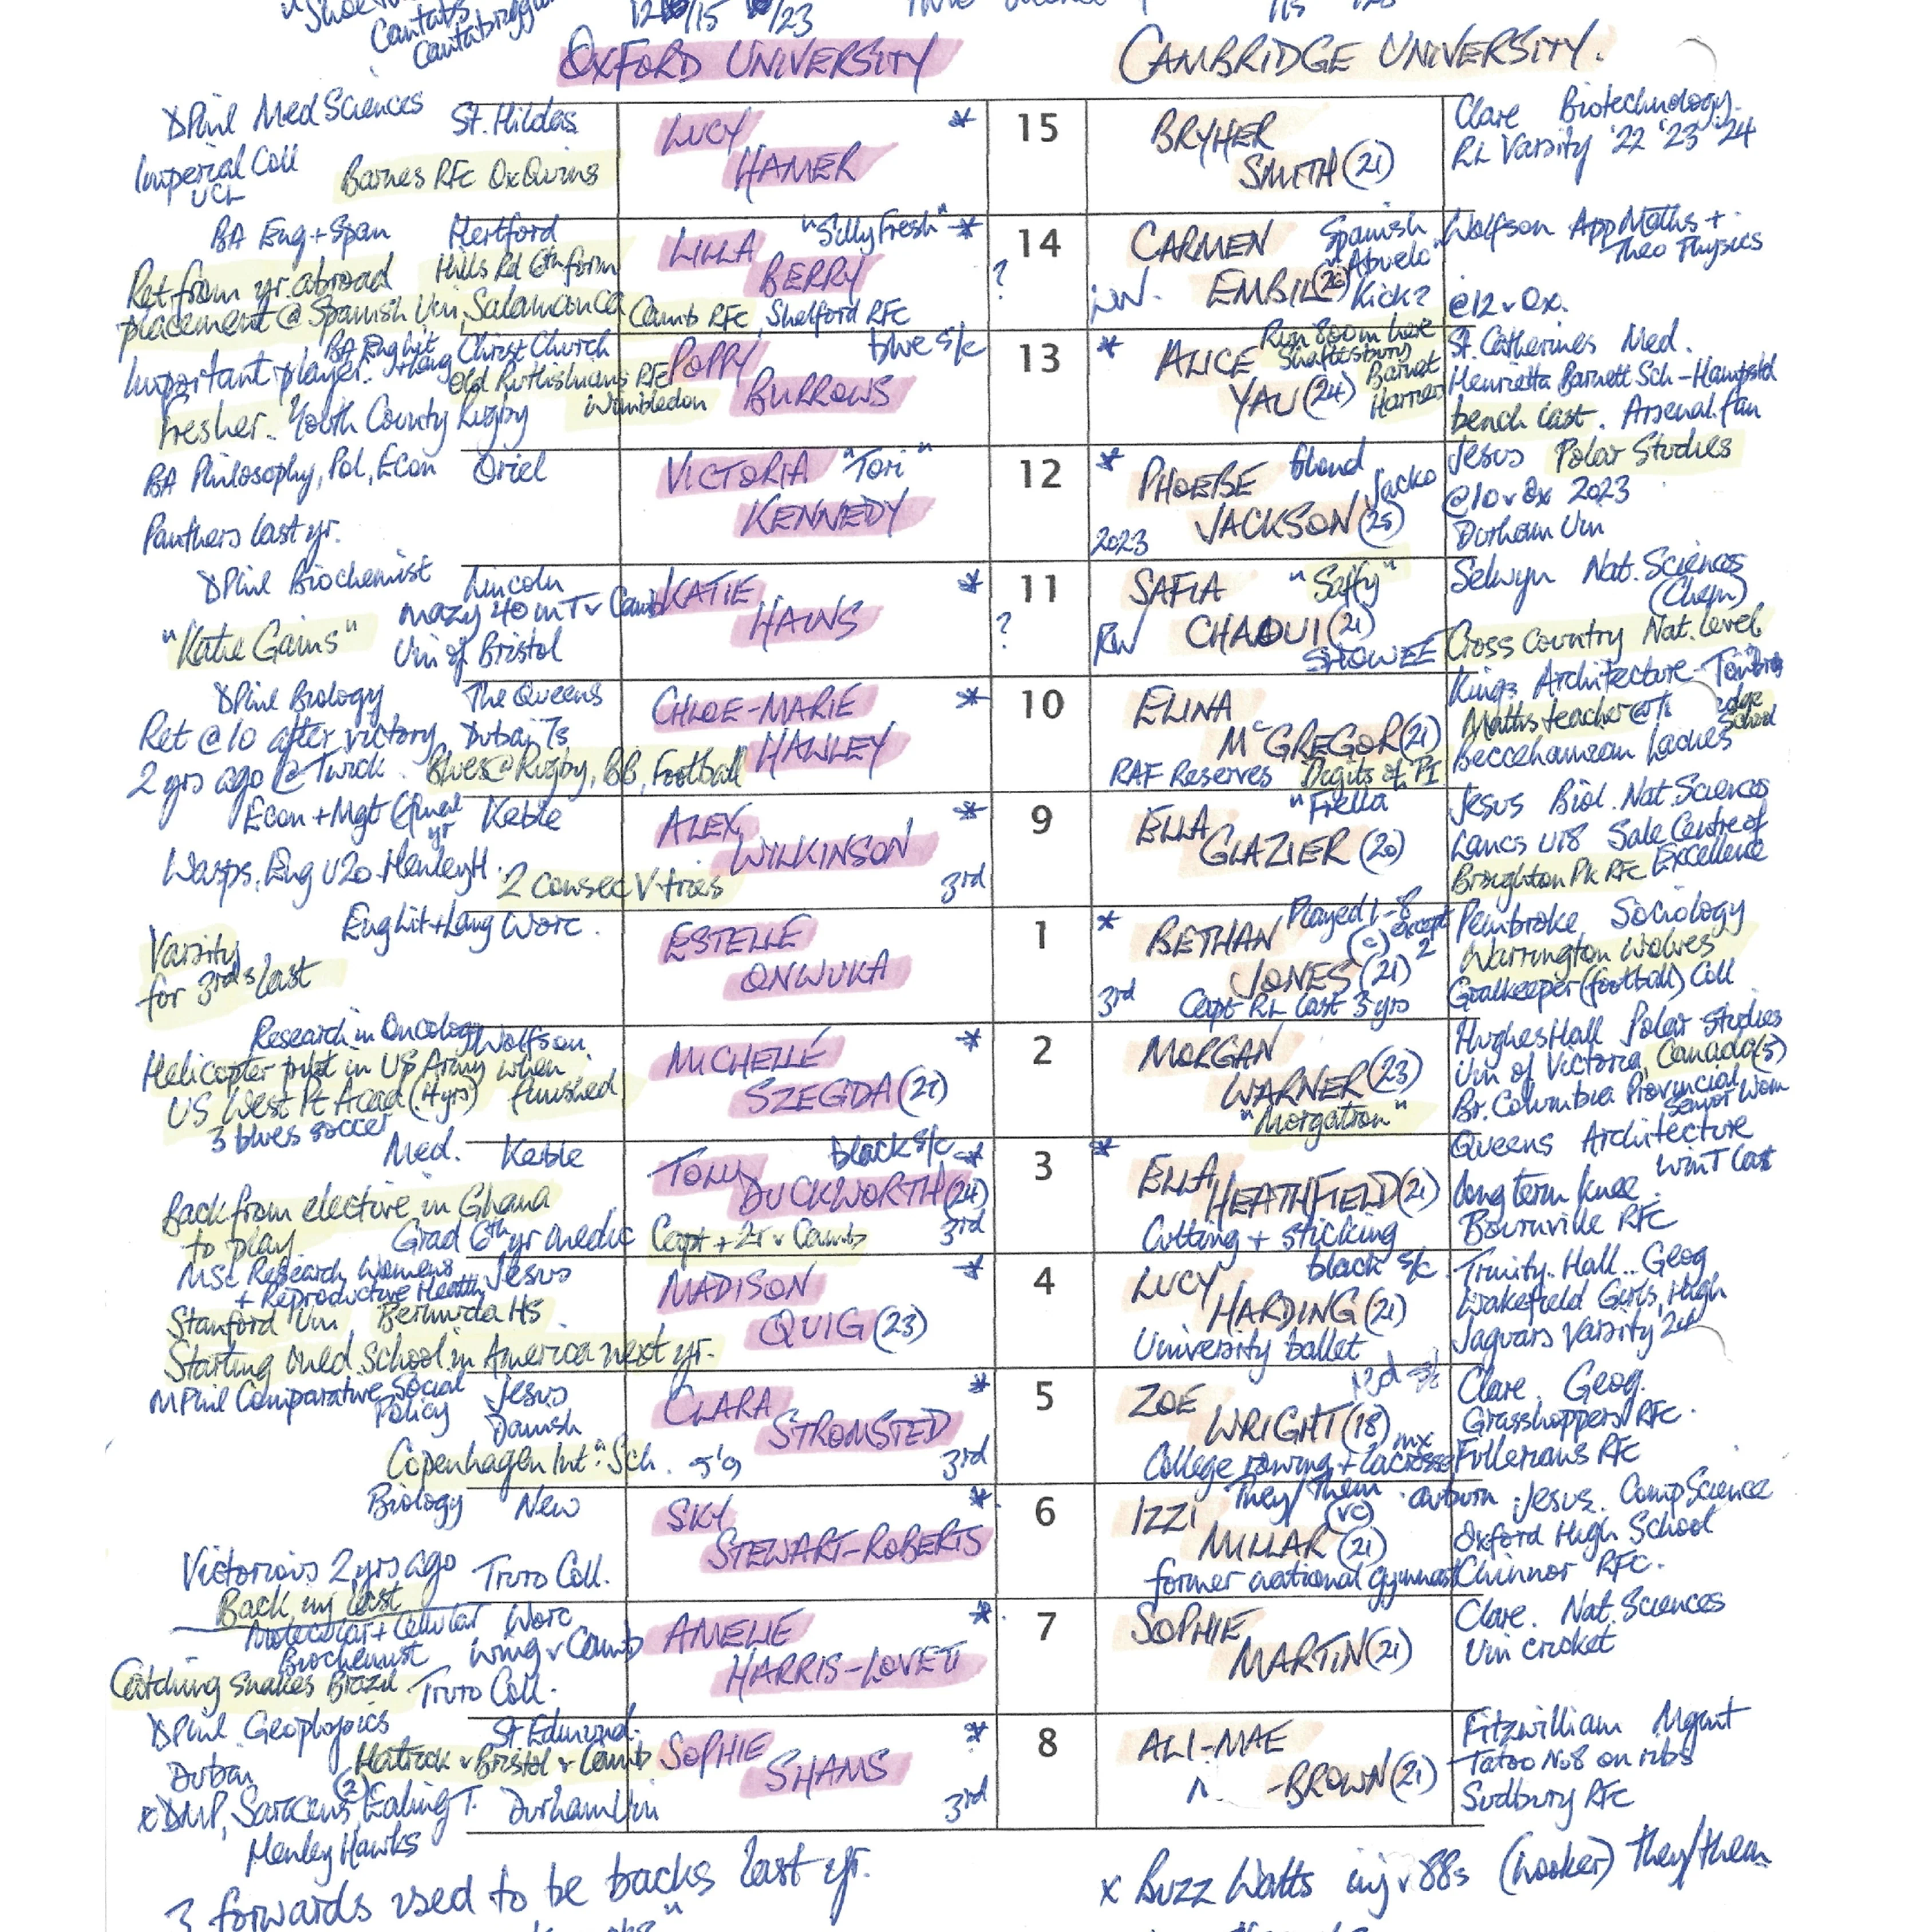 Cantabs
Cantabrigg
/15 /23
OXFORD UNIVERSITY
CAMBRIDGE UNIVERSITY.
DPhil Med Sciences St. Hildas
Imperial Coll
UCL
Barnes RFC OxQuins
LUCY *
HAMER
15
BRYHER
SMITH (21)
Clare Biotechnology.
RL Varsity '22 '23 '24
BA Eng + Span Hertford
Ret from yr. abroad Hills Rd 6th form
placement @ Spanish Uni, Salamanca
LILLA "Silly Fresh" *
BERRY
Camb RFC, Shelford RFC
?
14
CARMEN Spanish
"Abuelo"
EMBIL (26) Kick?
Wolfson App Maths +
Theo Physics
@12 v Ox.
BA Eng Lit + Lang Christ Church
Important player. Old Rutlishians RFC
Fresher. Youth County Rugby Wimbledon
POPPY blue s/c
BURROWS
13
* ALICE Run 800m here
Shaftesbury
Barnet
Harriers
YAU (24)
St. Catherines Med.
Henrietta Barnett Sch - Hampstd
bench last. Arsenal fan
BA Philosophy, Pol, Econ Oriel
Panthers last yr.
VICTORIA "Tori"
KENNEDY
12
* PHOEBE blond
Jacko
2023 JACKSON (25)
Jesus Polar Studies
@10 v Ox 2023
Durham Uni
DPhil Biochemist Lincoln
mazy 40m T v Camb
"Katie Gains" Uni of Bristol
KATIE *
HAINS
?
11
SAFIA "Saffy"
RW CHAOUI (21)
STOWEE
Selwyn Nat. Sciences
(Chem)
Cross Country Nat. Level
DPhil Biology The Queens
Ret @ 10 after victory Dubai 7s
2 yrs ago @ Twick. Blues @ Rugby, BB, Football
CHLOE-MARIE *
HAWLEY
10
ELINA
McGREGOR (21)
RAF Reserves Digits of PI
Kings Architecture - Tonbridge School
Maths teacher @
Beccehamian Ladies
Econ + Mgt (final yr Keble
Wasps. Eng U20. Henley H. 2 consec V tries
ALEX *
WILKINSON
3rd
9
ELLA "Frella"
GLAZIER (20)
Jesus Biol. Nat. Sciences
Lancs U18 Sale Centre of
Excellence
Broughton Pk RFC
Eng Lit + Lang Worc.
Varsity
for 3rds last
ESTELLE
ONWUKA
1
* BETHAN Played 1-8
(c) except 2
JONES (21)
3rd Capt RL last 3 yrs
Pembroke, Sociology
Warrington Wolves
Goalkeeper (football) Coll
Research in Oncology Wolfson
Helicopter pilot in US Army when
US West Pt Acad (4yrs) finished
3 blues soccer
MICHELLE *
SZEGDA (21)
2
MORGAN
WARNER (23)
"Morgatron"
Hughes Hall Polar Studies
Uni of Victoria, Canada (5)
Br. Columbia Provincial
Senior Wom
Med. Keble
Back from elective in Ghana
to play. Grad 6th yr medic
TOLLY black s/c *
DUCKWORTH (24)
Capt + 2T v Camb 3rd
3
* ELLA
HEATHFIELD (21)
Cutting + sticking
Queens Architecture
win T last
long term knee.
Bournville RFC
MSc Research Womens Jesus
+ Reproductive Health
Stanford Uni Bermuda HS
Starting Med School in America next yr.
MADISON *
QUIG (23)
4
LUCY black s/c.
HARDING (21)
University ballet
Trinity Hall.. Geog
Wakefield Girls, High
Jaguars Varsity '24
MPhil Comparative Social Jesus
Policy Danish
Copenhagen Int. Sch. 5'9
CLARA *
STROMSTED
3rd
5
ZOE
WRIGHT (18)
College rowing + mx lacrosse
Clare. Geog.
Grasshoppers RFC.
Fullerians RFC
Biology New
Victorious 2 yrs ago Truro Coll.
Back, inj last
SKY *
STEWART-ROBERTS
6
IZZI They/Them. auburn
(vc)
MILLAR (21)
former national gymnast
Jesus. Comp Science
Oxford High School
Chinnor RFC.
Molecular + Cellular Worc
Biochemist wing v Camb
Catching snakes Brazil. Truro Coll.
AMELIE *
HARRIS-LOVETT
7
SOPHIE
MARTIN (21)
Clare. Nat. Sciences
Uni cricket
DPhil Geophysics St Edmund.
Dubai Hatrick v Bristol v Camb
(2)
x DMP, Saracens, Ealing T. Durham Uni
Henley Hawks
SOPHIE *
SHAMS
3rd
8
ALI-MAE
-BROWN (21)
Fitzwilliam Mgmt
Tatoo No8 on ribs
Sudbury RFC
3 forwards used to be backs last yr.
x Buzz Watts inj v 88s (hooker) they/them